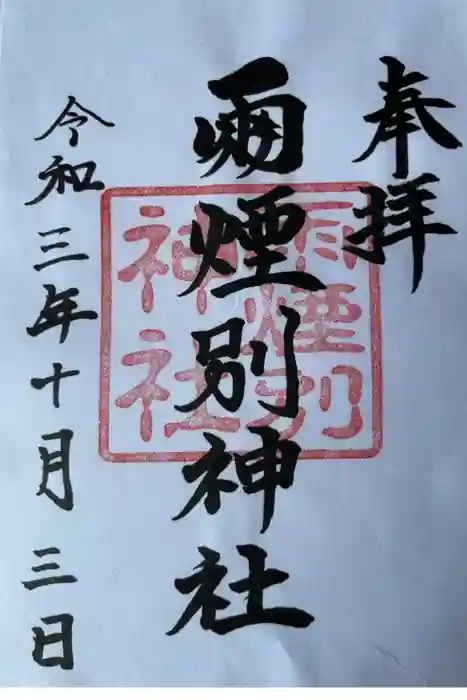 奉拝
雨煙別神社
令和三年十月三日
雨煙別
神社